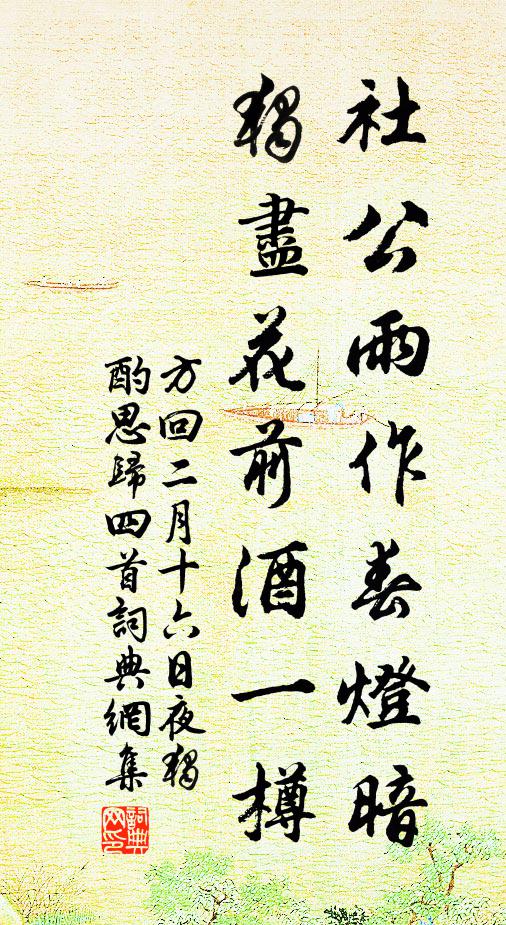 社公雨作春燈暗
獨盡花前酒一樽
方回二月十六日夜獨
酌思歸四首詞典網集
詞典
网印